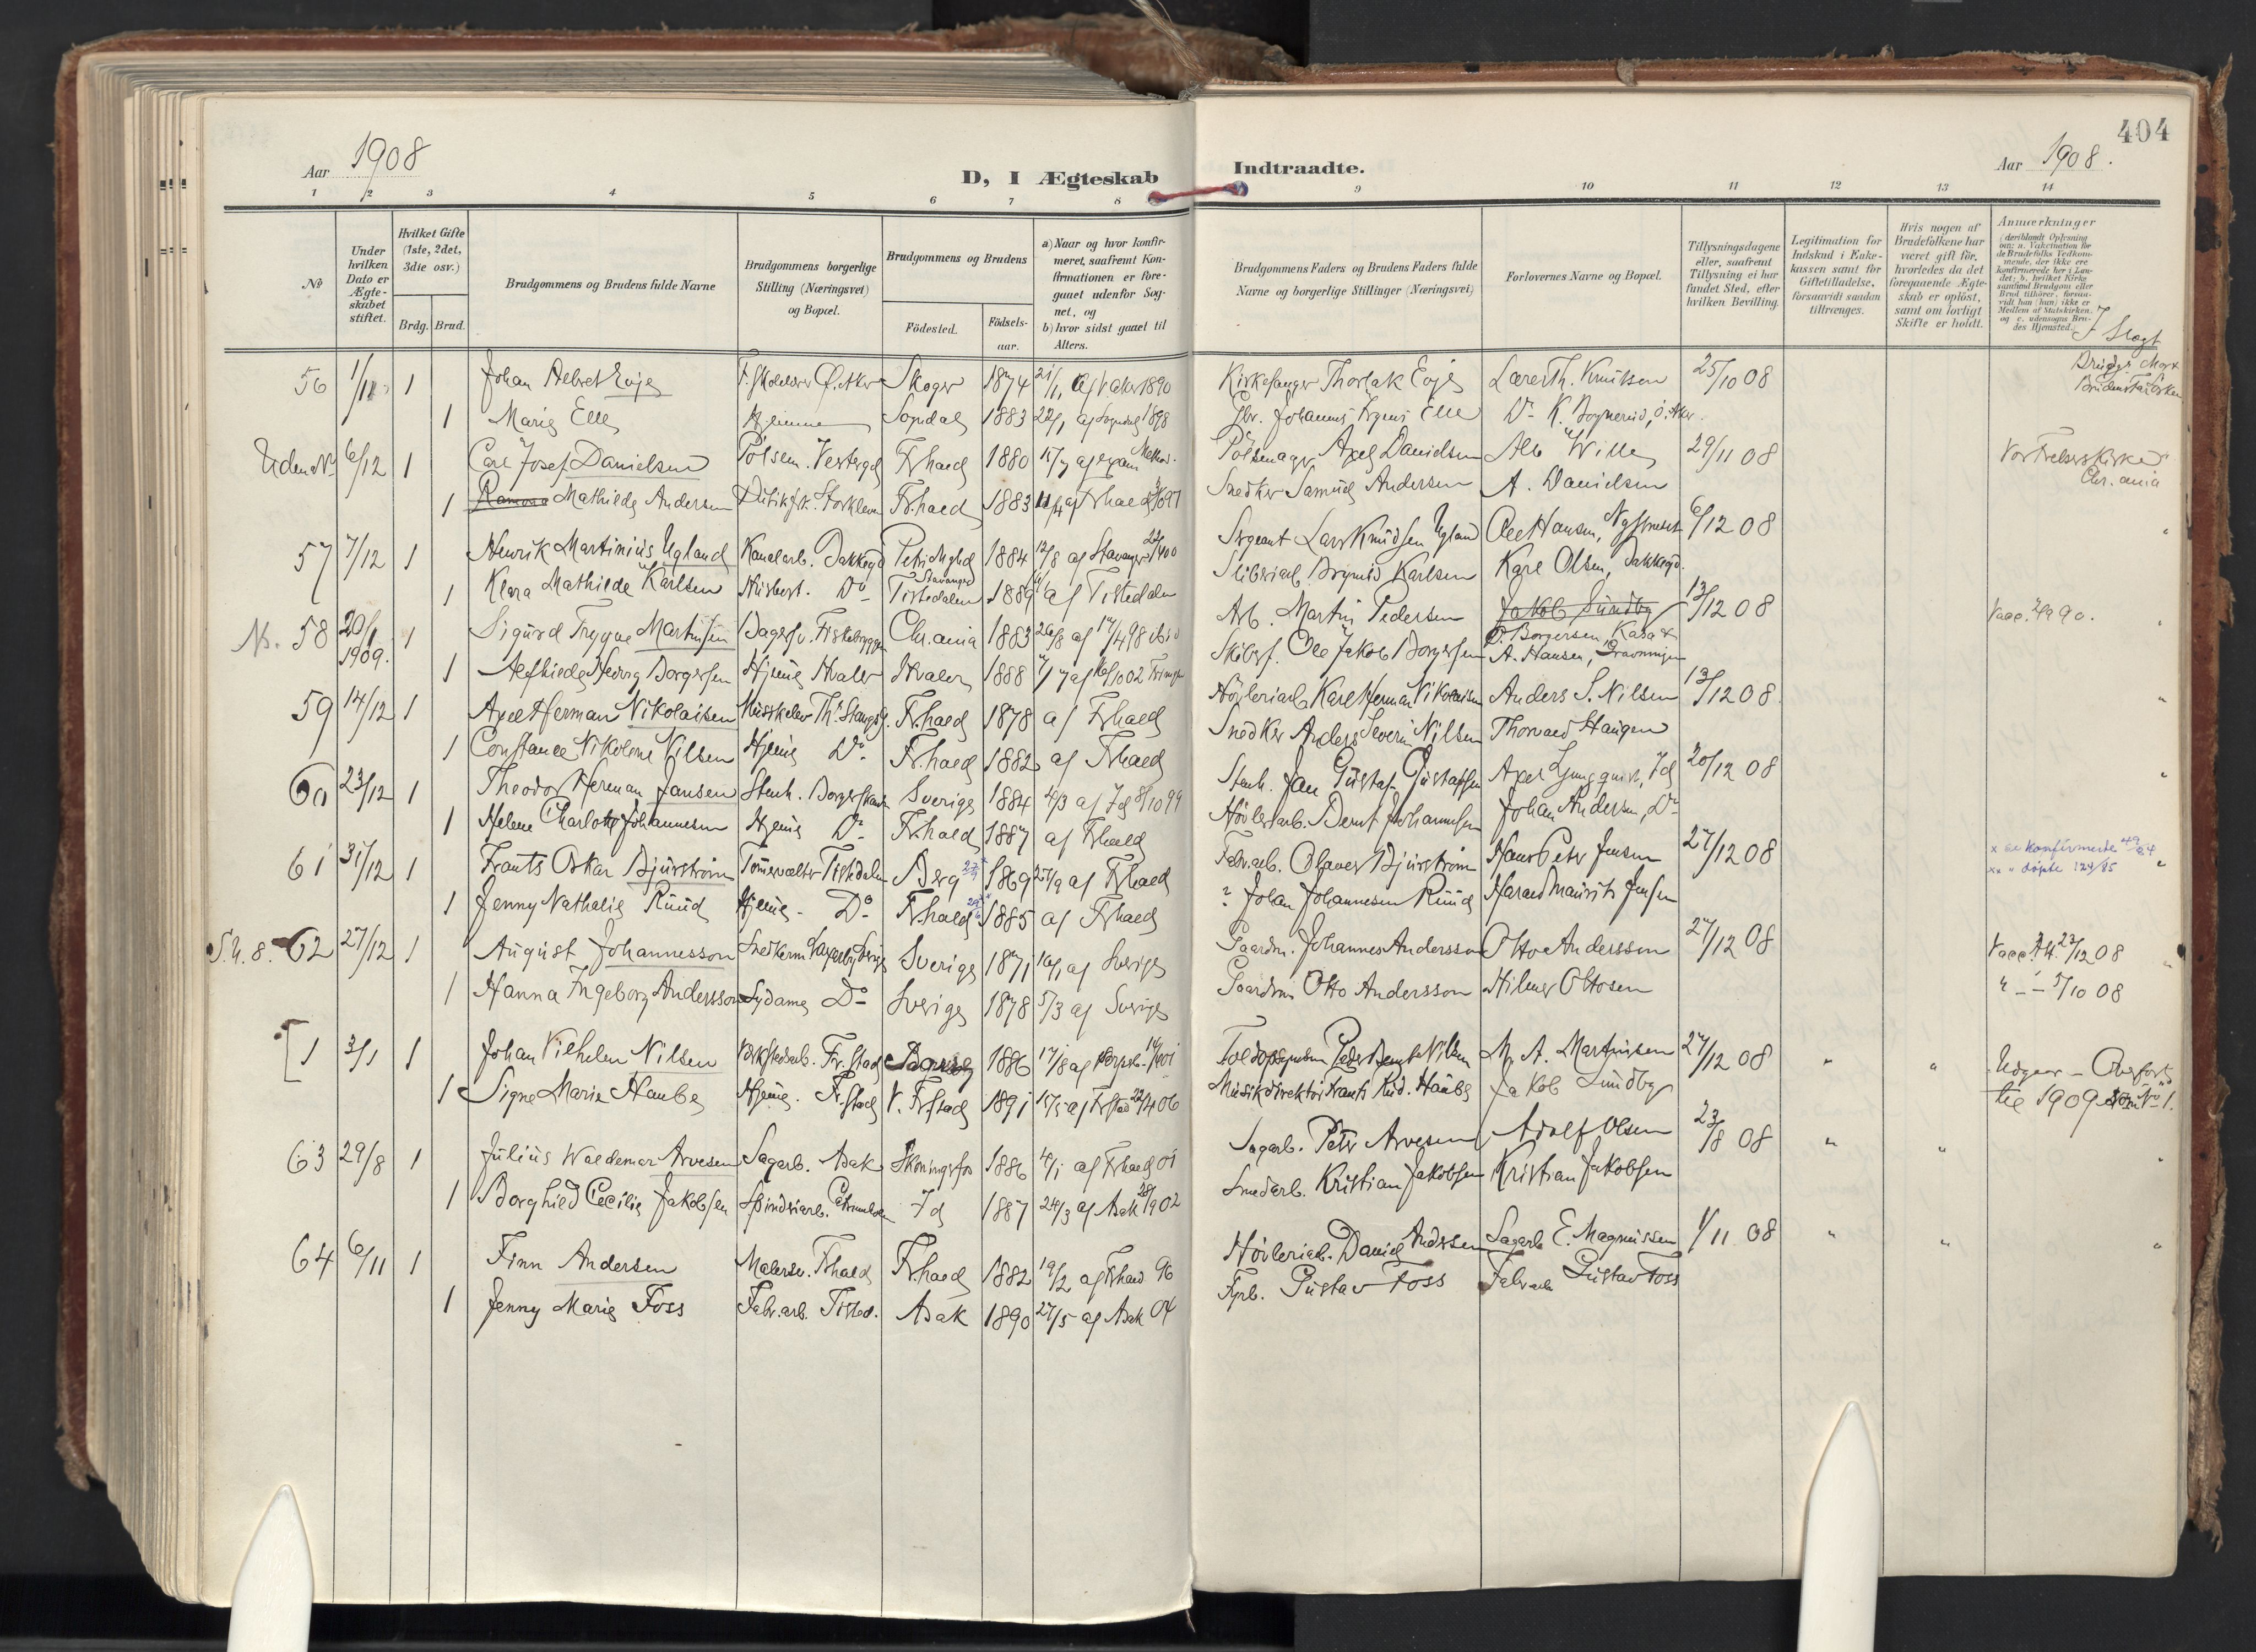 404
Aar 1908
D, I Ægteskab Indtraadte.
Aar 1908.
1 2 3 4 5 6 7 8 9 10 11 12 13 14
No
Under hvilken Dato er Ægteskabet stiftet.
Hvilket Gifte (1ste, 2det, 3die osv.)
Brdg. Brud.
Brudgommens og Brudens fulde Navne
Brudgommens borgerlige Stilling (Næringsvei) og Bopæl.
Brudgommens og Brudens
Födested. Födselsaar.
a) Naar og hvor konfirmeret, saafremt Konfirmationen er foregaaet udenfor Sognet, og
b) hvor sidst gaaet til Alters.
Brudgommens Faders og Brudens Faders fulde Navne og borgerlige Stillinger (Næringsvei)
Forlovernes Navne og Bopæl.
Tillysningsdagene eller, saafremt Tillysning ei har fundet Sted, efter hvilken Bevilling.
Legitimation for Indskud i Enkekassen samt for Giftetilladelse, forsaavidt saadan tiltrænges.
Hvis nogen af Brudefolkene har været gift för, hvorledes da det foregaaende Ægteskab er oplöst, samt om lovligt Skifte er holdt.
Anmærkninger (deriblandt Oplysning om: a. Vakcination for de Brudefolks Vedkommende, der ikke ere konfirmerede her i Landet; b. hvilket Kirkesamfund Brudgom eller Brud tilhörer, forsaavidt han (hun) ikke er Medlem af Statskirken, og c. udensogns Brudes Hjemsted.
I Slægt
56 1/11 1 Johan Albret Evje Skoger 1874 Kirkesanger Thorlak Evje Lærer Th. Knutson 25/10 08
1 Marie Elle Hjemme Sogndal 1883 Gbr. Johannes Elle Do K. Bognerud, Ö. Aker
Uden No 6/12 1 Carl Josef Danielsen Pölsem. Vestergd Fr.hald 1880 Pölsemager Axel Danielsen Alb Wille 29/11 08 Vor Frelsers Kirke Chr.ania
1 Ramona Mathilde Andersen Fr.hald 1883 11/4 af Fr.hald Snedker Samuel Andersen A. Danielsen
57 7/12 1 Henrik Martinius Ugland Kanalarb. Bakkegd 1884 12/8 af Stavanger Stavanger Sergeant Lars Knudsen Ugland Ole Hansen, 6/12 08
1 Klara Mathilde Karlsen Do Tistedalen 1889 af Tistedalen Sliberiarb. Karlsen Karl Olsen, Bakkegd.
N. 58 20/1 1909. 1 Sigurd Trygve Martinsen Bagersv. Fiskebryggen Chr.ania 1883 26/8 af 17/4 98 ibid Arb. Martin Pedersen Jakob Sundby 13/12 08 Vacc. 2/9 90.
O. Borgersen, Kasa &
1 Alfhilde Hedvig Borgersen Hjeme Hvaler Hvaler 1888 Skibsf. Ole Jakob Borgersen A. Hansen, Graaningen
59 14/12 1 Axel Herman Nikolaisen Fr.hald 1878 af Fr.hald Höyleriarb. Karl Herman Nikolaisen Anders S. Nilsen 13/12 08.
1 Constance Nikoline Nilsen Hjeme Do Fr.hald 1882 af Fr.hald Snedker Anders Severin Nilsen Thorvald Haugen
60 23/12 1 Theodor Herman Jansen Stenh. Sverige 1884 4/3 af Id 8/10 99 Stenh. Jan Gustaf Gustafsen Axel Ljungquist, Id 20/12 08
1 Helene Charlotte Johannesen Hjeme Do Fr.hald 1887 af Fr.hald Hövleriarb. Bernt Johannesen Johan Andersen, Do
61 31/12 1 Frants Oskar Bjurström Tistedalen Berg 1869 af Fr.hald Fabr.arb. Olaves Bjurström Hans Peter Jensen 27/12 08 x ae konfirmerte
1 Jenny Nathalie Ruud Hjeme Do Fr.hald 1885 af Fr.hald ? Johan Johannesen Ruud Harald Maurits Jensen xx " döpte 124/85
S.U. 8. 62 27/12 1 August Johannesson Sverige 1871 af Sverige Gaardm. Johannes Andersson Otto Andersson 27/12 08 Vacc. 23/12 08
1 Hanna Ingeborg Andersson Sydame Do Sverige 1878 5/3 af Sverige Gaardm Otto Andersson Hilmer Ottosen " – – 5/10 08
[1 3/1 1 Johan Vilhelm Nilsen Værkstedsarb. Fr.stad Borge 1886 Peder Bernt Nilsen M. A. Martinisen 27/12 08 " " Udgaar – Overfört
1 Signe Marie Haube Hjeme. Fr.stad V. Fr.stad 1891 Musikdirektör Frants Rud. Haube Jakob Sundby til 1909 som No 1.
63 29/8 1 Julius Waldemar Arvesen Sagarb. Asak Skoningsfos 1886 4/1 af Fr.hald 01 Sagarb. Peter Arvesen Adolf Olsen 23/8 08 " "
1 Borghild Cecilie Jakobsen Spinderiarb. Id 1887 24/3 af Asak 02 Smedarb. Kristian Jakobsen Kristian Jakobsen
64 6/11 1 Finn Andersen Malersv. Fr.hald Fr.hald 1882 19/2 af Fr.hald 96 Hövleriarb. Daniel Andersen Sagarb E. Magnussen 1/11 08 " " "
1 Jenny Marie Foss Fabr.arb. Tisted. Asak 1890 27/5 af Asak 04 Fyrb. Gustav Foss Fabrarb Gustav Foss